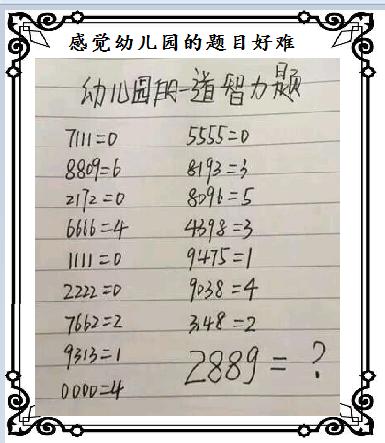 感觉幼儿园的题目好难
幼儿园段一道智力题
7111=0 5555=0
8809=6 8193=3
2172=0 8096=5
6666=4 4398=3
1111=0 9475=1
2222=0 9038=4
7662=2 3148=2
9313=1
2889=?
0000=4